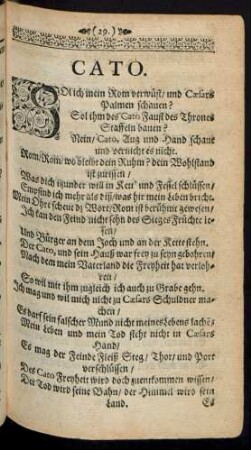 (29.)
CATO.
SOl ich mein Rom verwüst/ und Cæsars
Palmen schauen?
Sol ihm des Cato Faust des Thrones
Staffeln bauen?
Nein/ Cato, Aug und Hand schaut
und vernicht es nicht.
Rom/ Rom/ wo bleibt dein Ruhm? dein Wohlstand
ist zurissen/
Was dich itzunder will in Kett' und Fessel schlüssen/
Empfind ich mehr als diß/ was hir mein Leben bricht.
Mein Ohr scheut ds Wort/ Rom ist berühmt gewesen/
Ich kan den Feind nicht sehn des Sieges Früchte le-
sen/
Und Bürger an dem Joch und an der Kette stehn.
Der Cato, und sein Hauß war frey zu seyn gebohren/
Nach dem mein Vaterland die Freyheit hat verloh-
ren/
So wil mit ihm zugleich ich auch zu Grabe gehn.
Ich mag und wil mich nicht zu Cæsars Schuldner ma-
chen/
Es darf sein falscher Mund nicht meines Lebens lachē;
Mein Leben und mein Tod steht nicht in Cæsars
Hand/
Es mag der Feinde Fleiß Steg/ Thor/ und Port
verschlüssen/
Des Cato Freyheit wird doch zuentkommen wissen/
Die Tod wird seine Bahn/ der Himmel wird sein
Land.
Es